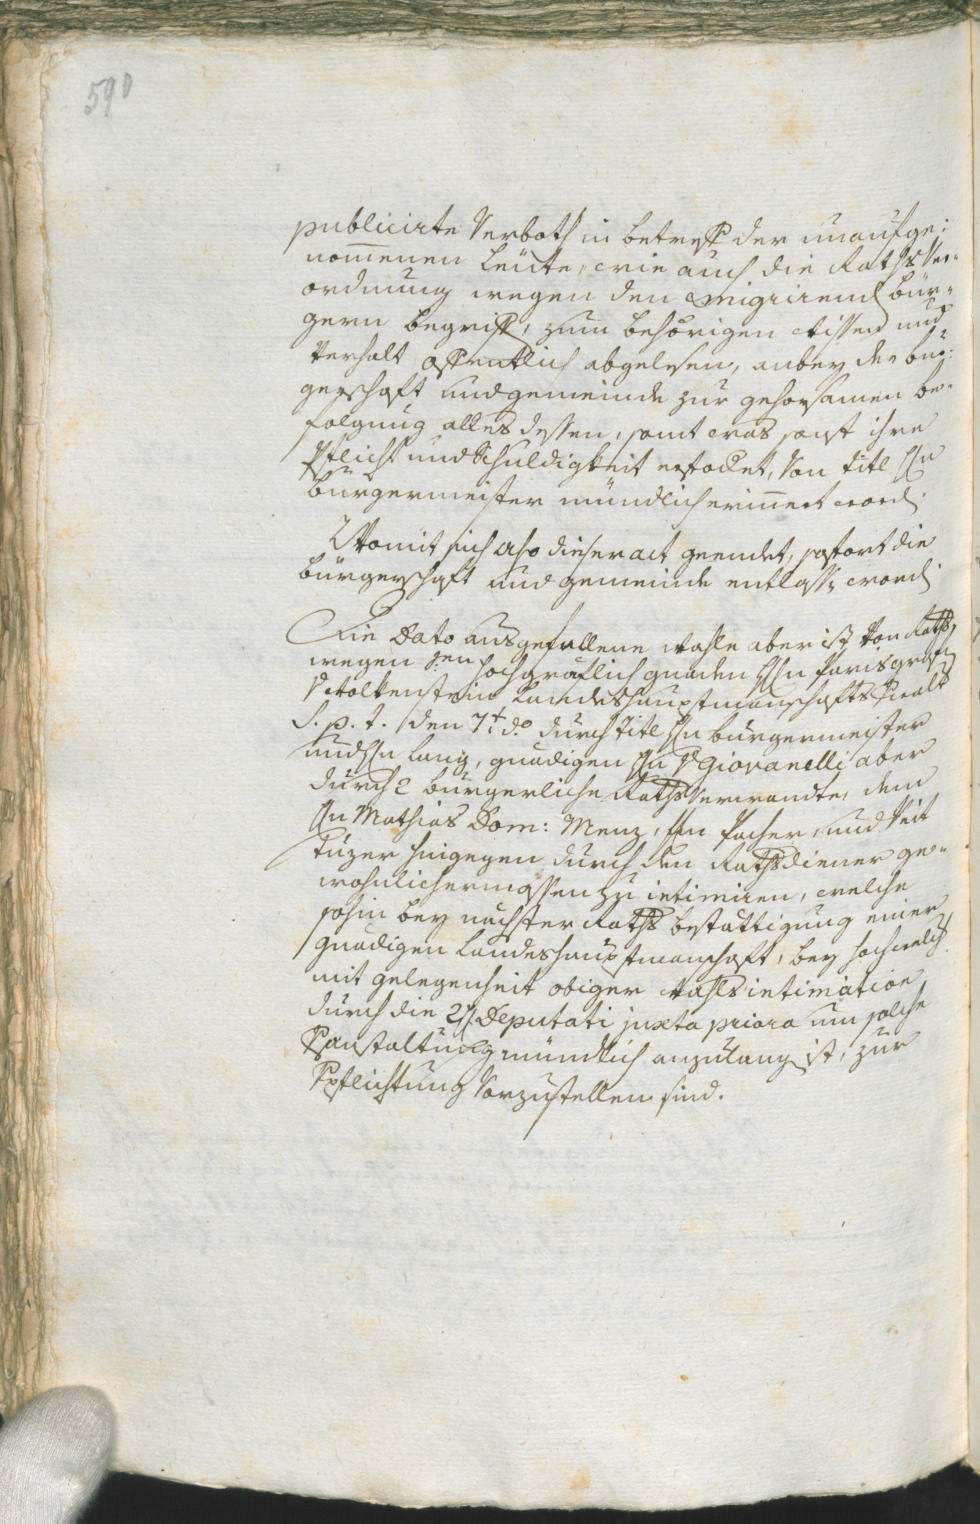 590
publicirte Verboth in betreff der unaufge¦
nom̅enen Leüte, wie auch die Raths Ver¦
ordnung wegen den emigrirend bür¦
gern begriff, zum behörigen wissen und
Verhalt offentlich abgelesen, anbey der bur¦
gerschaft und gemeinde zur gehorsamen be¦
folgung alles dessen, samt was sonst ihre
Pflicht und Schuldigkeit erfodert, Von titl Hn
Bürgermeister mündlich erin̅ert word.
Womit sich also dieser act geendet, sofort die
bürgerschaft und gemeinde entlass. word.
Die Dato ausgefallene wahle aber ist von Raths
wegen Sen hochgräflich gnaden Hn Paris grafen
v Wolkenstein Landeshauptmanschafts Vwalt
S. p. t. den 7t do durch titl Hn bürgermeister
und Hn Lang, gnädigen Hn v Giovanelli aber
durch 2 bürgerliche Raths Verwandte, dem
Hn Mathias Dom: Menz, Hn Pacher, und Veit
Tuzer hingegen durch den Rathsdiener ge¦
wohnlichermassen zu intimiren, welche
sohin bey nächster Raths bestättigung einer
gnädigen Landeshauptmanschaft, bey hochwelch
mit gelegenheit obiger wahls intimation
durch die 2 H. Deputati juxta priora um solche
Vanstaltung mündlich anzulang. ist, zur
Vpflichtung Vorzustellen sind.